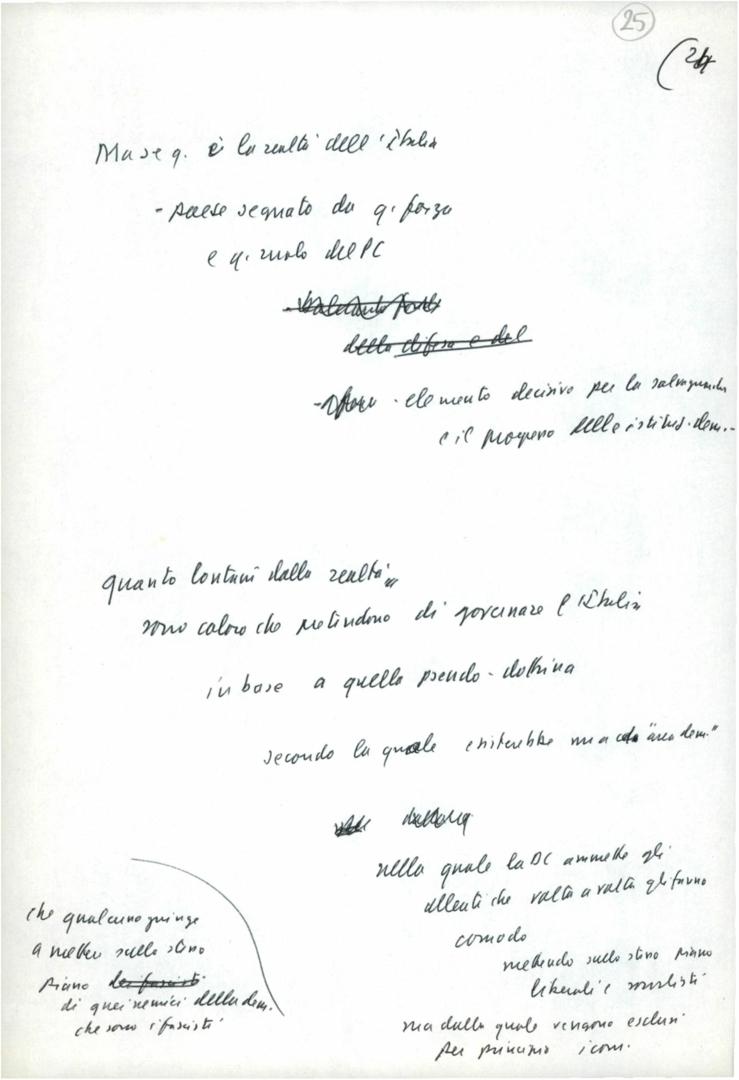 25
(24
Ma se q. è la realtà dell'Italia
- paese segnato da q. forza
e q. ruolo del PC
della difesa e del
- elemento decisivo per la salvaguardia
e il progresso delle istituz. dem.-
quanto lontani dalla realtà
sono coloro che pretendono di governare l'Italia
in base a quella pseudo-dottrina
secondo la quale esisterebbe una "area dem."
nella quale la DC ammette gli
alleati che volta a volta gli fanno
comodo
mettendo sullo stesso piano
liberali e socialisti
ma dalla quale vengono esclusi
per principio i com.
che qualcuno spinge
a mettere sullo stesso
piano dei fascisti
di quei nemici della dem.
che sono i fascisti